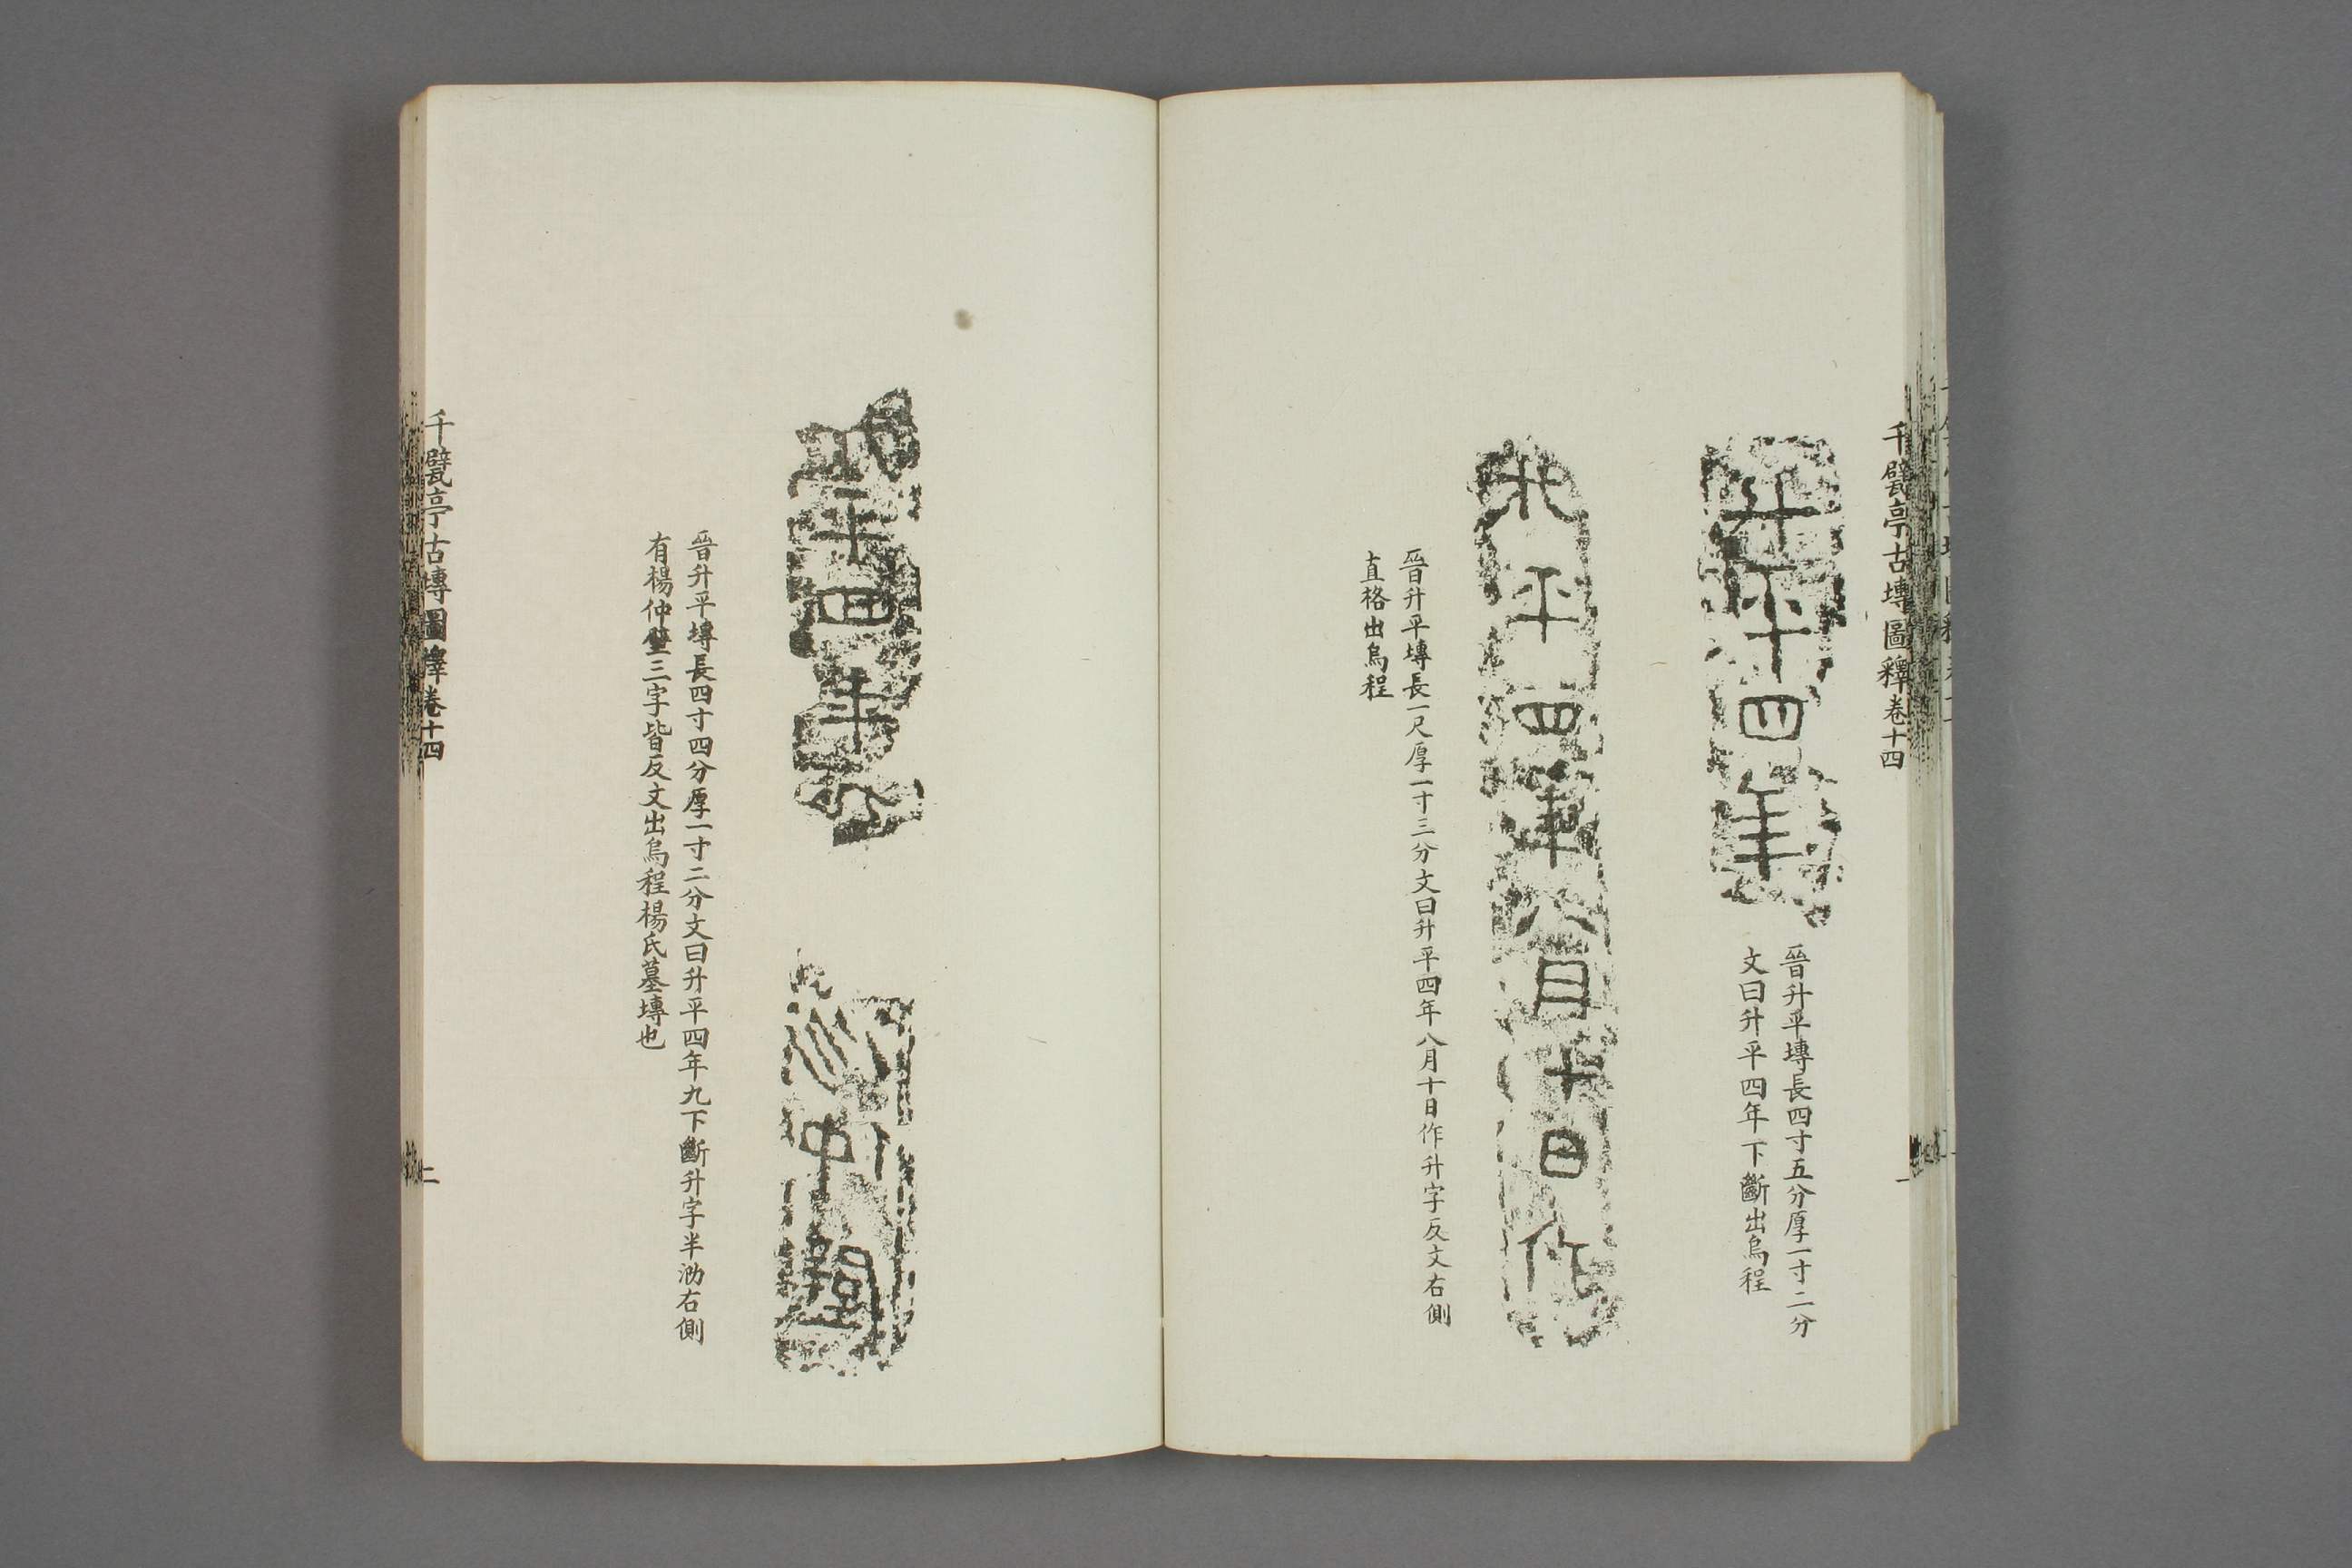 千甓亭古塼圖釋卷十四
升平四年
晉升平塼長四寸五分厚一寸二分
文曰升平四年下斷出烏程
升平四年八月十日作
晉升平塼長一尺厚一寸三分文曰升平四年八月十日作升字反文右側
直格出烏程
平四年九
仲
晉升平塼長四寸四分厚一寸二分文曰升平四年九下斷升字半泐右側
有楊仲堅三字皆反文出烏程楊氏墓塼也
千甓亭古塼圖釋卷十四
二